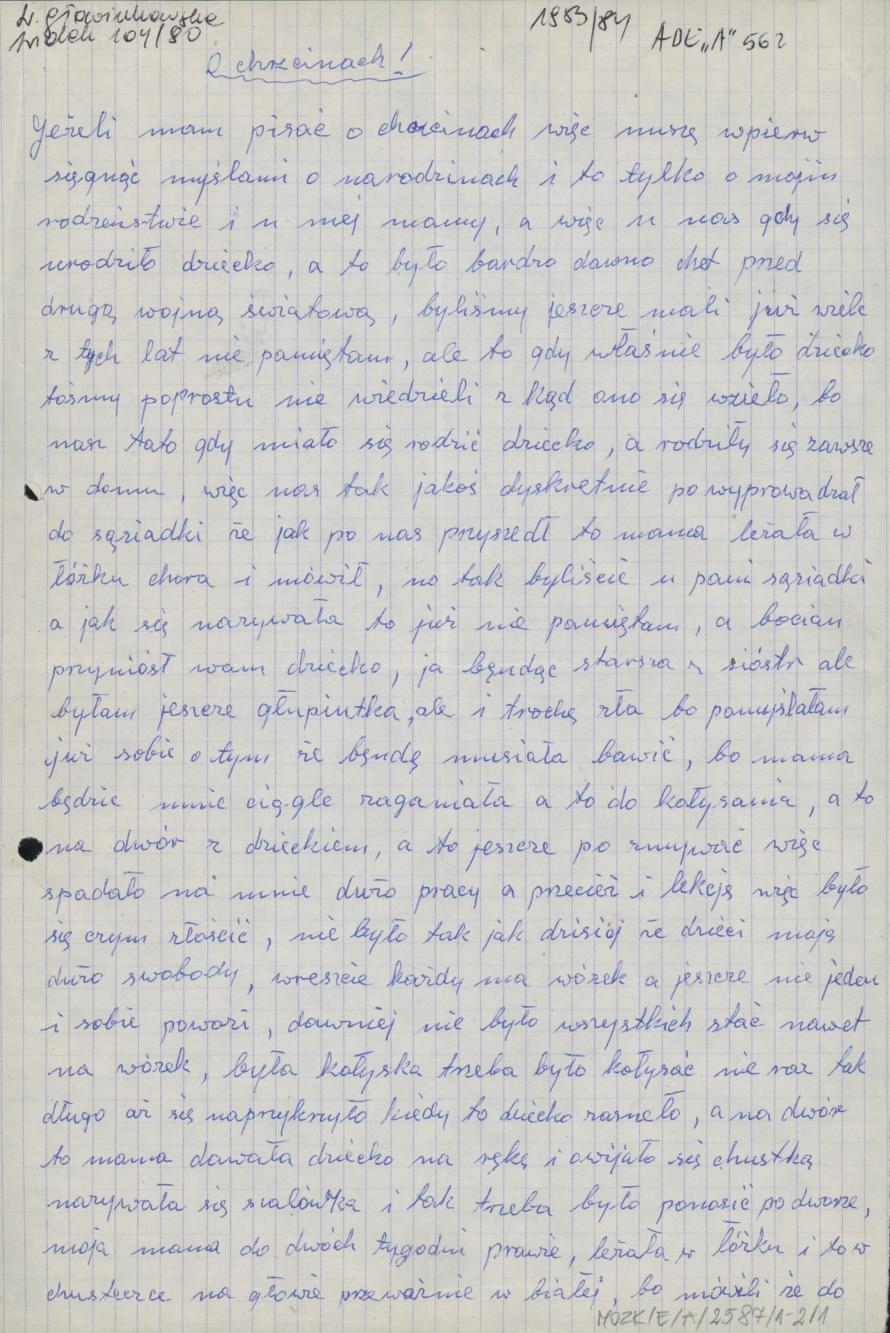 Ł. Główinkowska
Środek 104/80
1983/84
ADE „A" 562
O chrzcinach!
Jeżeli mam pisać o chrzcinach więc muszę wpierw
sięgnąć myślami o narodzinach i to tylko o mojim
rodzeństwie i u mej mamy, a więc u nas gdy się
urodziło dziecko, a to było bardzo dawno het przed
drugą wojną światową, byliśmy jeszcze mali już wiele
z tych lat nie pamiętam, ale to gdy właśnie było dziecko
tośmy poprostu nie wiedzieli z kąd ono się wzieło, bo
nasz tato gdy miało się rodzić dziecko, a rodziły się zawsze
w domu, więc nas tak jakoś dyskretnie powyprowadzał
do sąsiadki że jak po nas przyszedł to mama leżała w
łóżku chora i mówił, no tak byliście u pani sąsiadki
a jak się nazywała to już nie pamiętam, a bocian
przyniósł wam dziecko, ja będąc starsza z sióstr ale
byłam jeszcze głupiutka, ale i trochę zła bo pomyślałam
już sobie o tym że będę musiała bawić, bo mama
będzie mnie ciągle zaganiała a to do kołysania, a to
na dwór z dzieckiem, a to jeszcze po zmywać więc
spadało na mnie dużo pracy a przecież i lekcje więc było
się czym złościć, nie było tak jak dzisiaj że dzieci mają
dużo swobody, wreszcie każdy ma wózek a jeszcze nie jeden
i sobie powozi, dawniej nie było wszystkich stać nawet
na wózek, była kołyska trzeba było kołysać nie raz tak
długo aż się naprzykryło kiedy to dziecko zasneło, a na dwór
to mama dawała dziecko na rękę i owijało się chustką
nazywała się szalówka i tak trzeba było ponosić po dworze,
moja mama do dwóch tygodni prawie, leżała w łóżku i to w
chusteczce na głowie przeważnie w białej, bo mówili że do
MOZK/E/A/2587/1-2/1